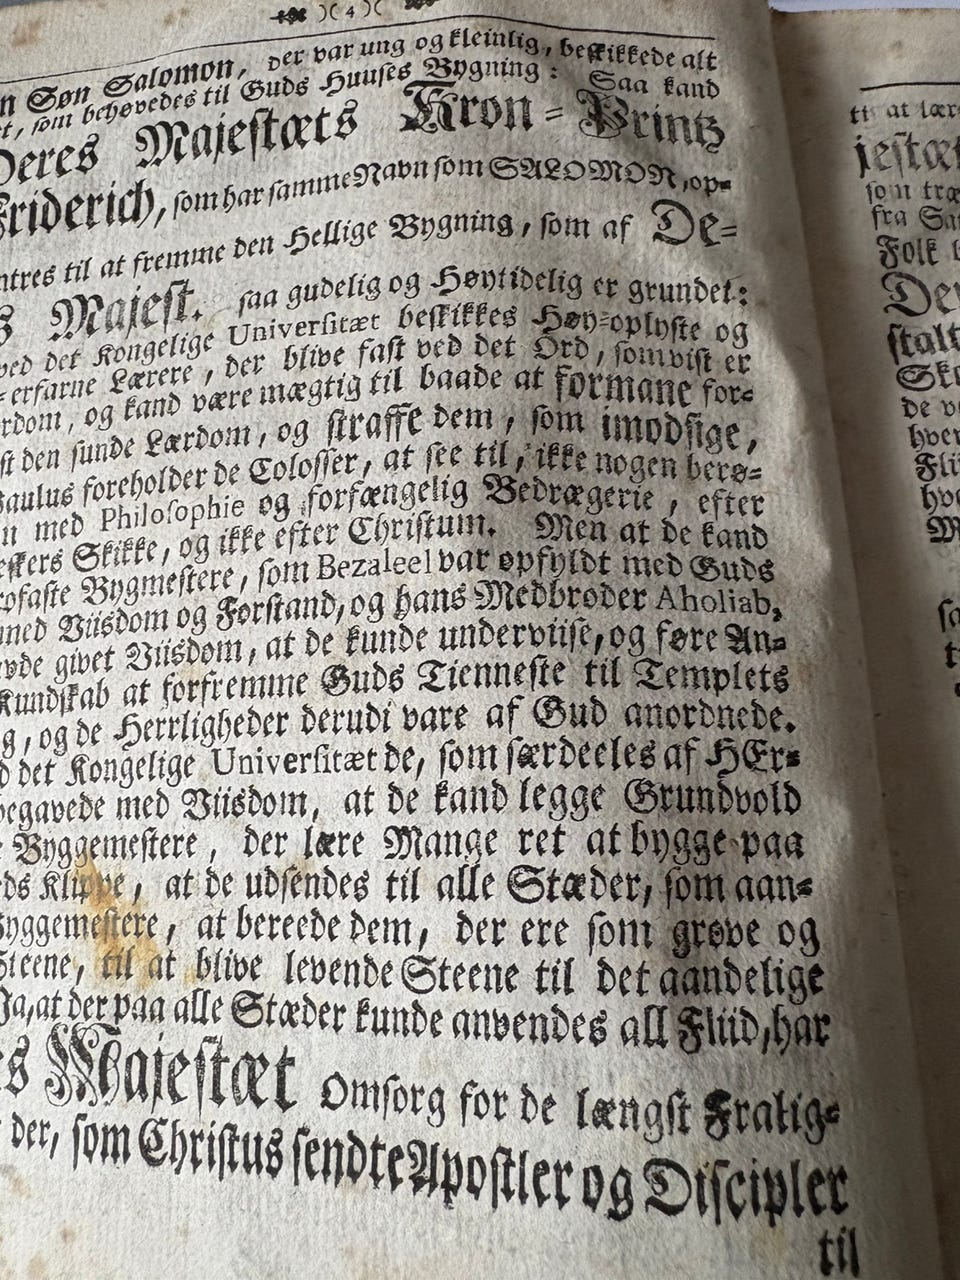 )( 4 )(
n Søn Salomon, der var ung og kleinlig, beskikkede alt
et, som behøvedes til Guds Huuses Bygning: Saa kand
Deres Majestæts Kron-Printz
Friderich, som har samme Navn som SALOMON, op-
ntres til at fremme den Hellige Bygning, som af De-
s Majest. saa gudelig og Høytidelig er grundet:
ved det Kongelige Universitæt beskikkes Høy-oplyste og
-erfarne Lærere, der blive fast ved det Ord, som vist er
rdom, og kand være mægtig til baade at formane for-
st den sunde Lærdom, og straffe dem, som imodsige,
Paulus foreholder de Colosser, at see til, ikke nogen berø-
n med Philosophie og forfængelig Bedrægerie, efter
eskers Skikke, og ikke efter Christum. Men at de kand
ofaste Bygmestere, som Bezaleel var opfyldt med Guds
med Viisdom og Forstand, og hans Medbroder Aholiab,
vde givet Viisdom, at de kunde underviise, og føre An-
Kundskab at forfremme Guds Tienneste til Templets
g, og de Herrligheder derudi vare af Gud anordnede.
d det Kongelige Universitæt de, som særdeeles af HEr-
begavede med Viisdom, at de kand legge Grundvold
Byggemestere, der lære Mange ret at bygge paa
eds Klippe, at de udsendes til alle Stæder, som aan-
Byggemestere, at bereede dem, der ere som grove og
Steene, til at blive levende Steene til det aandelige
Ja, at der paa alle Stæder kunde anvendes all Fliid, har
es Majestæt Omsorg for de længst Fralig-
der, som Christus sendte Apostler og Discipler
til
ti at lær
jestæt
som træ
fra Sa
Folk
De
stalt
Sk
de v
hver
Fli
hv
M
sa
t